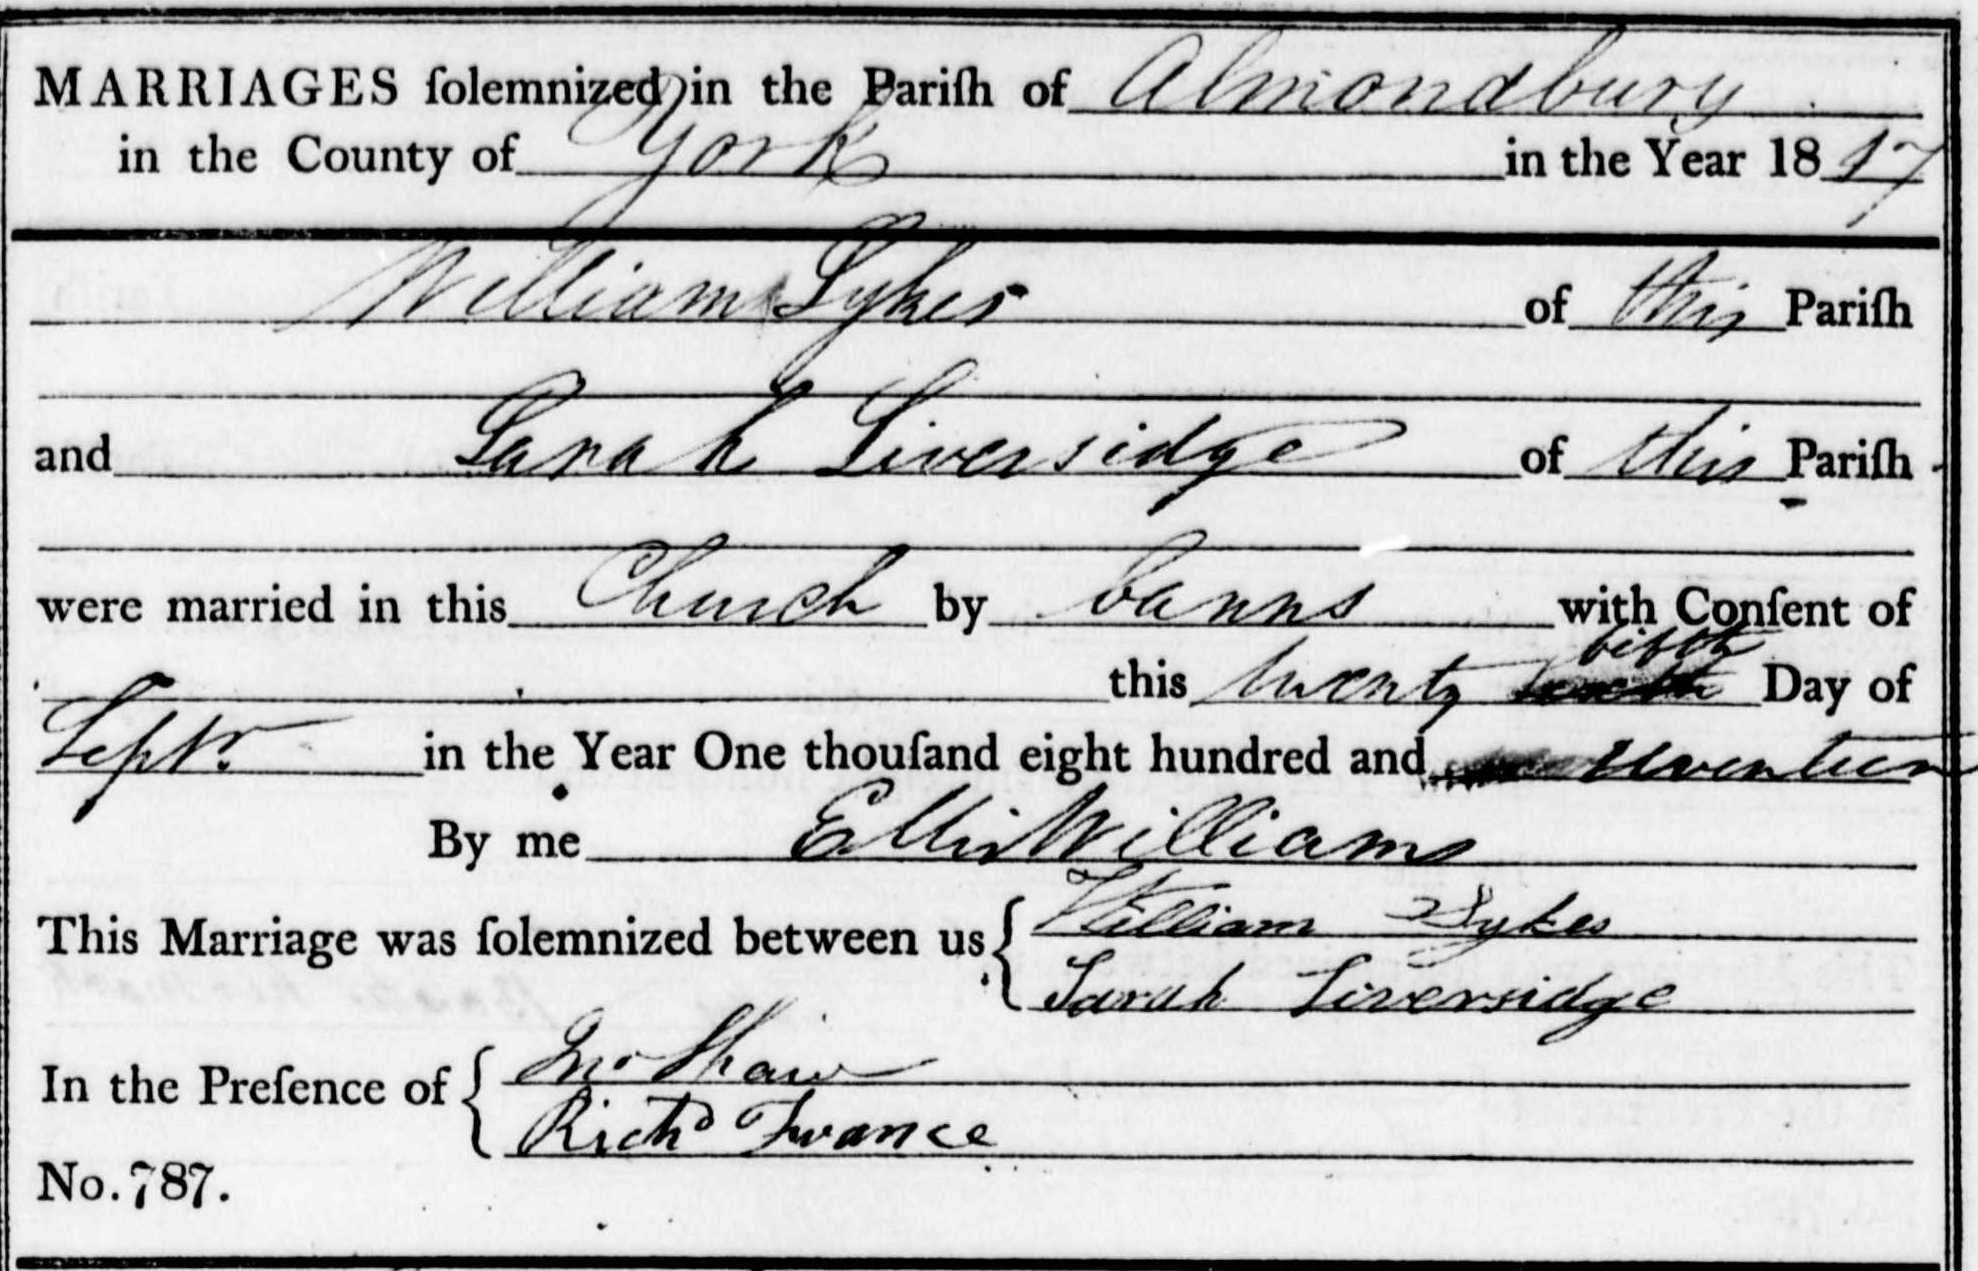 MARRIAGES ſolemnized in the Pariſh of Almondbury
in the County of York in the Year 1817
William Sykes of this Pariſh
and Sarah Liversidge of this Pariſh
were married in this Church by banns with Conſent of
fifth
this twenty Day of
Septr. in the Year One thouſand eight hundred and seventeen
By me Ellis Williams
This Marriage was ſolemnized between us { William Sykes
Sarah Liversidge
In the Preſence of { Jno Shaw
Richd France
No. 787.